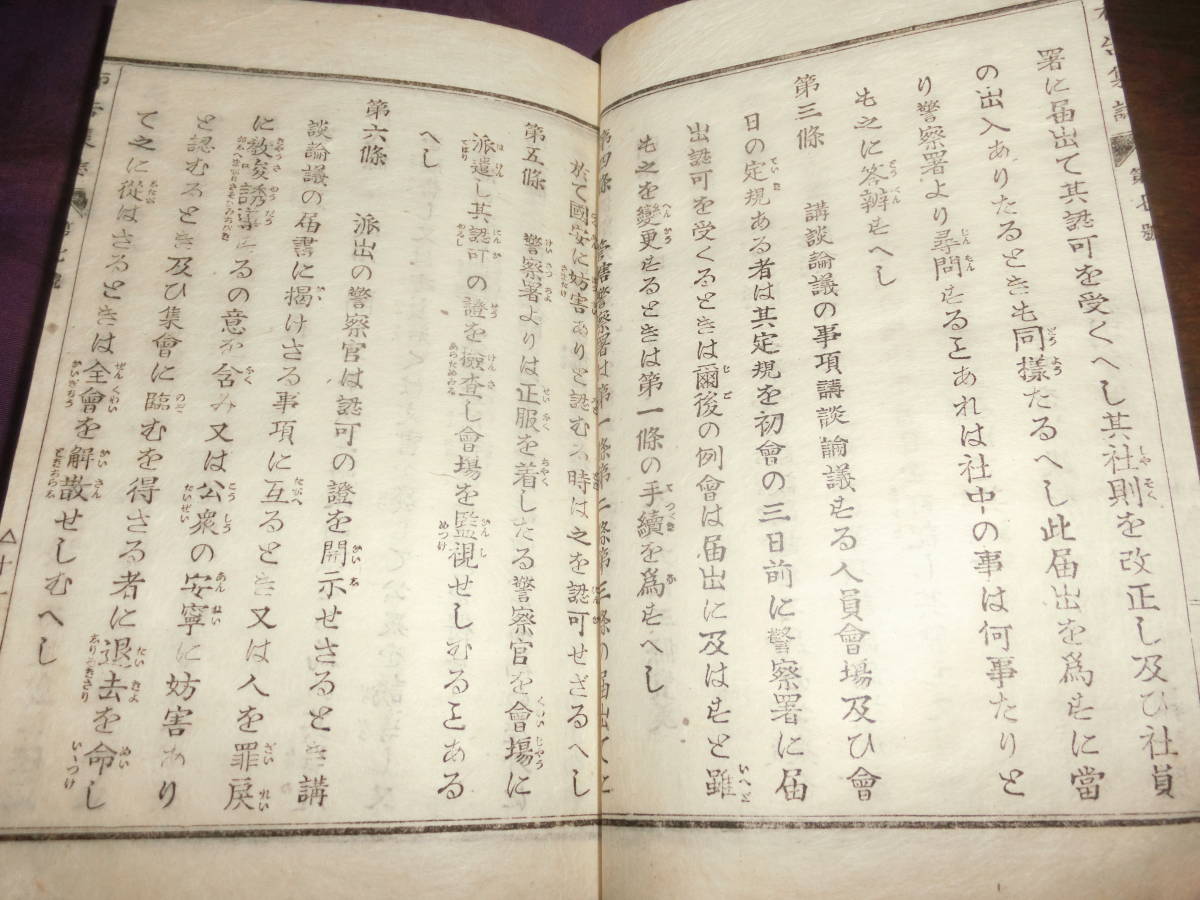 布告集誌 第七號
署に届出て其認可を受くへし其社則を改正し及ひ社員
の出入ありたるときも同様たるへし此届出を爲すに當
り警察署より尋問するヿあれは社中の事は何事たりと
も之に答辨すへし
第三條 講談論議の事項講談論議する人員會塲及ひ會
日の定規ある者は其定規を初會の三日前に警察署に届
出認可を受くるときは爾後の例會は届出に及はすと雖
も之を變更するときは第一條の手續を爲すへし
第四條 警察署は第一條第二條第三條の届出てに
於て國安に妨害ありと認むる時は之を認可せざるへし
第五條 警察署よりは正服を着したる警察官を會塲に
派遣し其認可の證を撿査し會塲を監視せしむるヿある
へし
第六條 派出の警察官は認可の證を開示せさるとき講
談論議の届書に掲けさる事項に亙るとき又は人を罪戻
に教唆誘導するの意を含み又は公衆の安寧に妨害あり
と認むるとき及ひ集會に臨むを得さる者に退去を命し
て之に從はさるときは全會を解散せしむへし